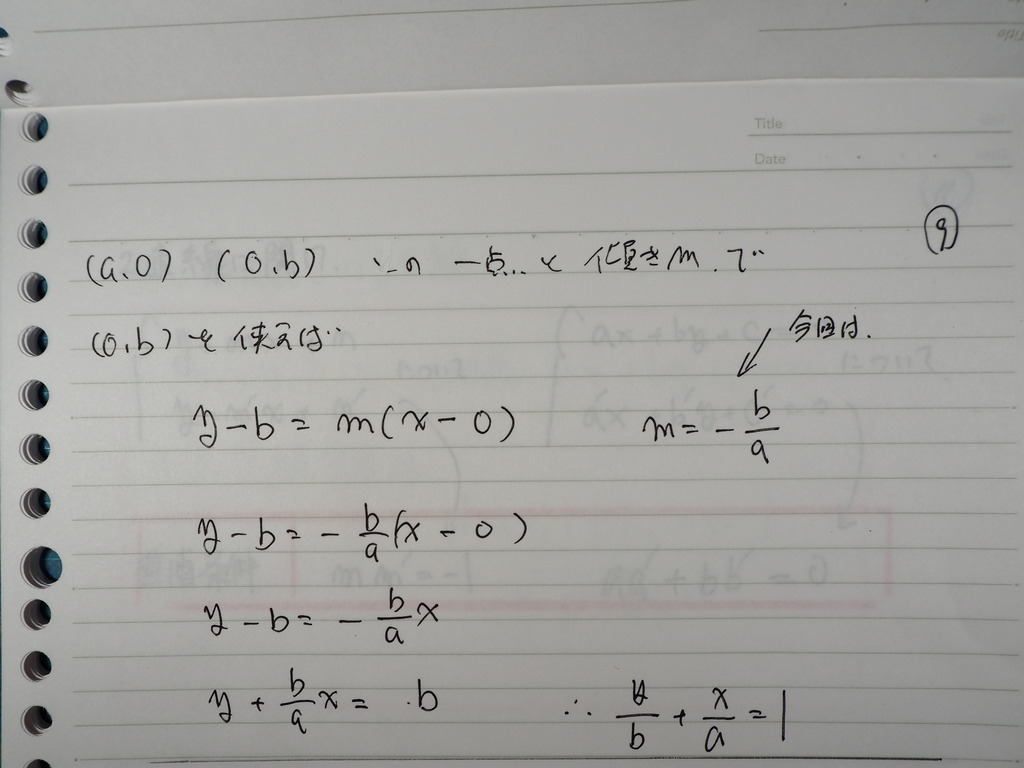 Title
Date
⑨
(a.0) (0.b) この一点..と傾きm.で
(0.b)を使えば
今回は.
y-b=m(x-0) m=-b/a
y-b=-b/a(x-0)
y-b=-b/a x
y+b/a x=b ∴ y/b+x/a=1